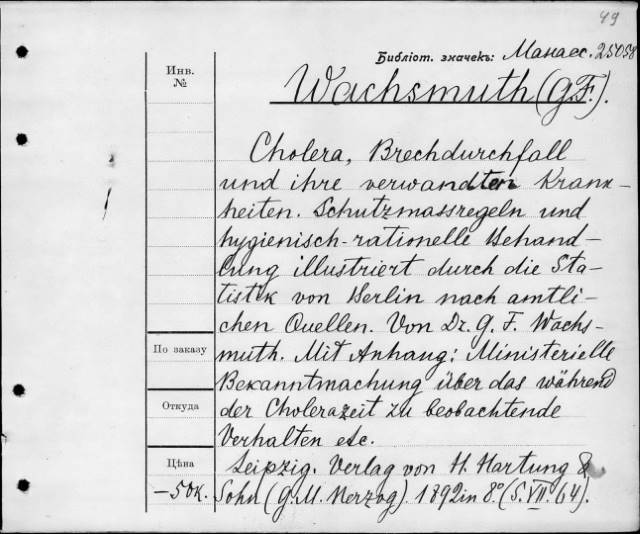 49
Библіот. значекъ: Манасс. 25058
Инв.
№
Wachsmuth (G.F.).
Cholera, Brechdurchfall
und ihre verwandten Krank-
heiten. Schutzmassregeln und
hygienisch-rationelle Behand-
lung illustriert durch die Sta-
tistik von Berlin nach amtli-
chen Quellen. Von Dr. G. F. Wachs-
muth. Mit Anhang: Ministerielle
Bekanntmachung über das während
der Cholerazeit zu beobachtende
Verhalten etc.
Leipzig. Verlag von H. Hartung &
Sohn (G. M. Herzog). 1892 in 8° (S. VII. 64).
По заказу
Откуда
Цѣна
-50к.